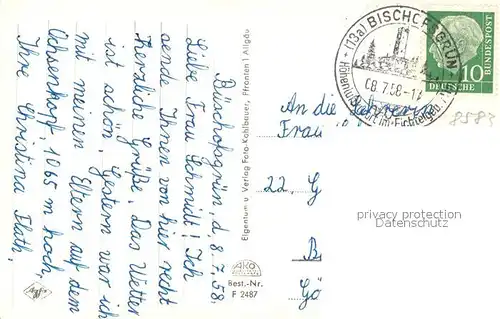 Büschofsgrün, d. 8.7.58,
Liebe Frau Schmidt! Ich
sende Ihnen von hier recht
herzliche Grüße. Das Wetter
ist schön. Gestern war ich
mit meinen Eltern auf dem
Ochsenkopf 1065 m hoch,
Ihre Christina Flath,
Eigentum u. Verlag Foto-Kohlbauer, Pfronten / Allgäu
AKO
Best.-Nr.
F 2487
Agfa
(13a) BISCHOFSGRÜN
08.7.58-17
Höhenluftkurort im Fichtelgeb.
10
DEUTSCHE
BUNDESPOST
8583
An die
Frau
22. G
B
Gö
privacy protection
Datenschutz